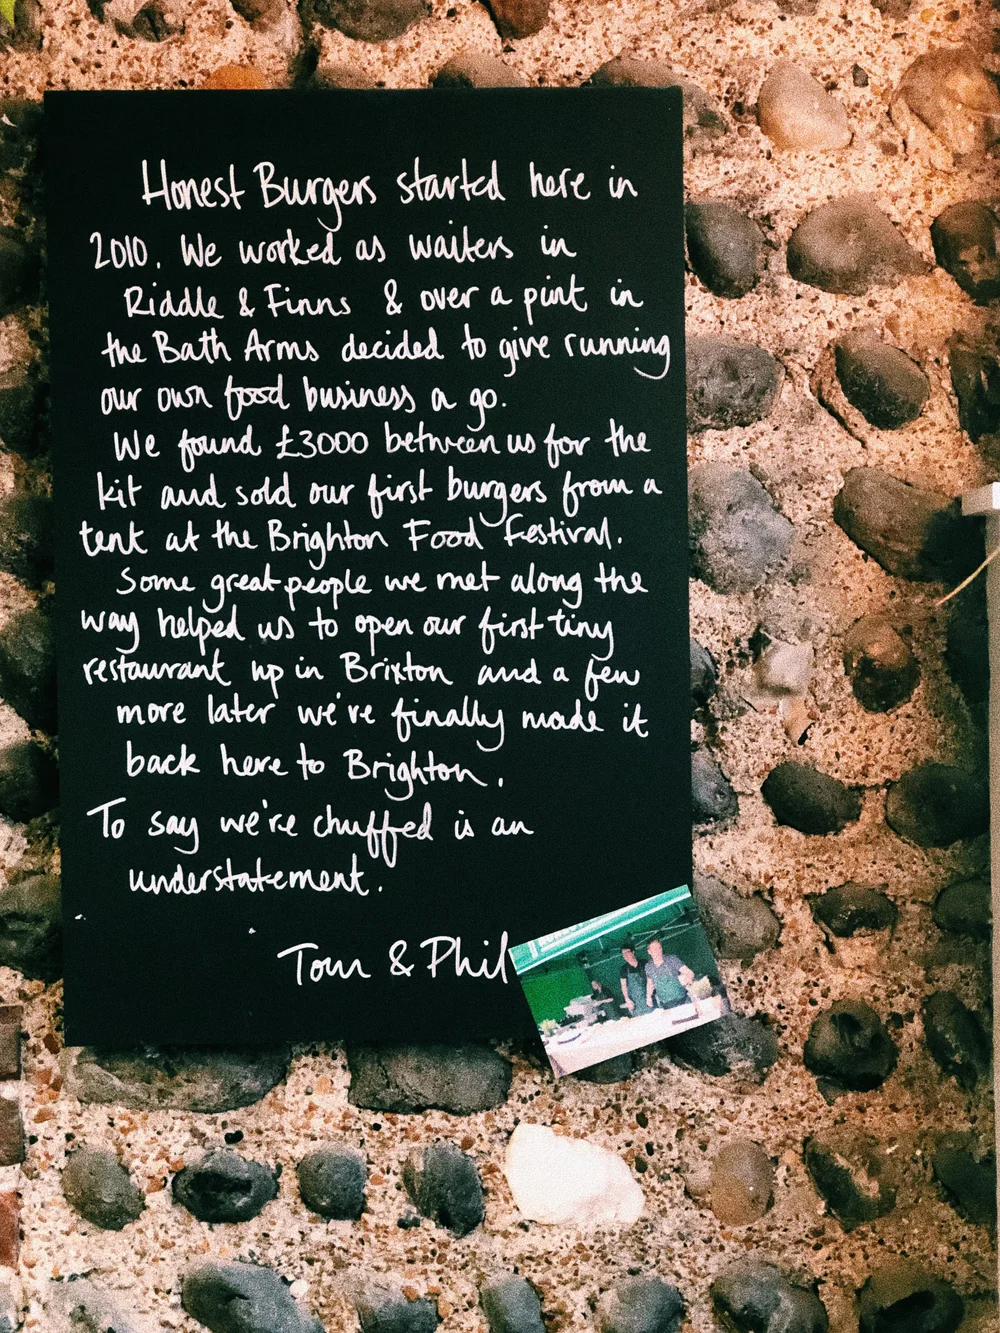 Honest Burgers started here in
2010. We worked as waiters in
Riddle & Finns & over a pint in
the Bath Arms decided to give running
our own food business a go.
We found £3000 between us for the
kit and sold our first burgers from a
tent at the Brighton Food Festival.
Some great people we met along the
way helped us to open our first tiny
restaurant up in Brixton and a few
more later we've finally made it
back here to Brighton.
To say we're chuffed is an
understatement.
Tom & Phil